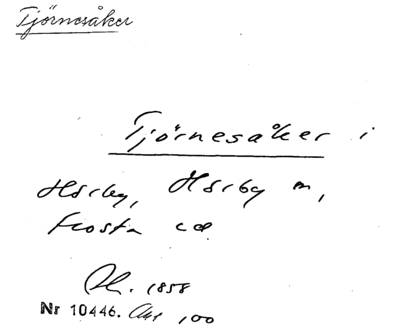 Tjörnesåker
Tjörnesåker i
Hörby, Hörby m,
Frosta
1858
Nr 10446. 100